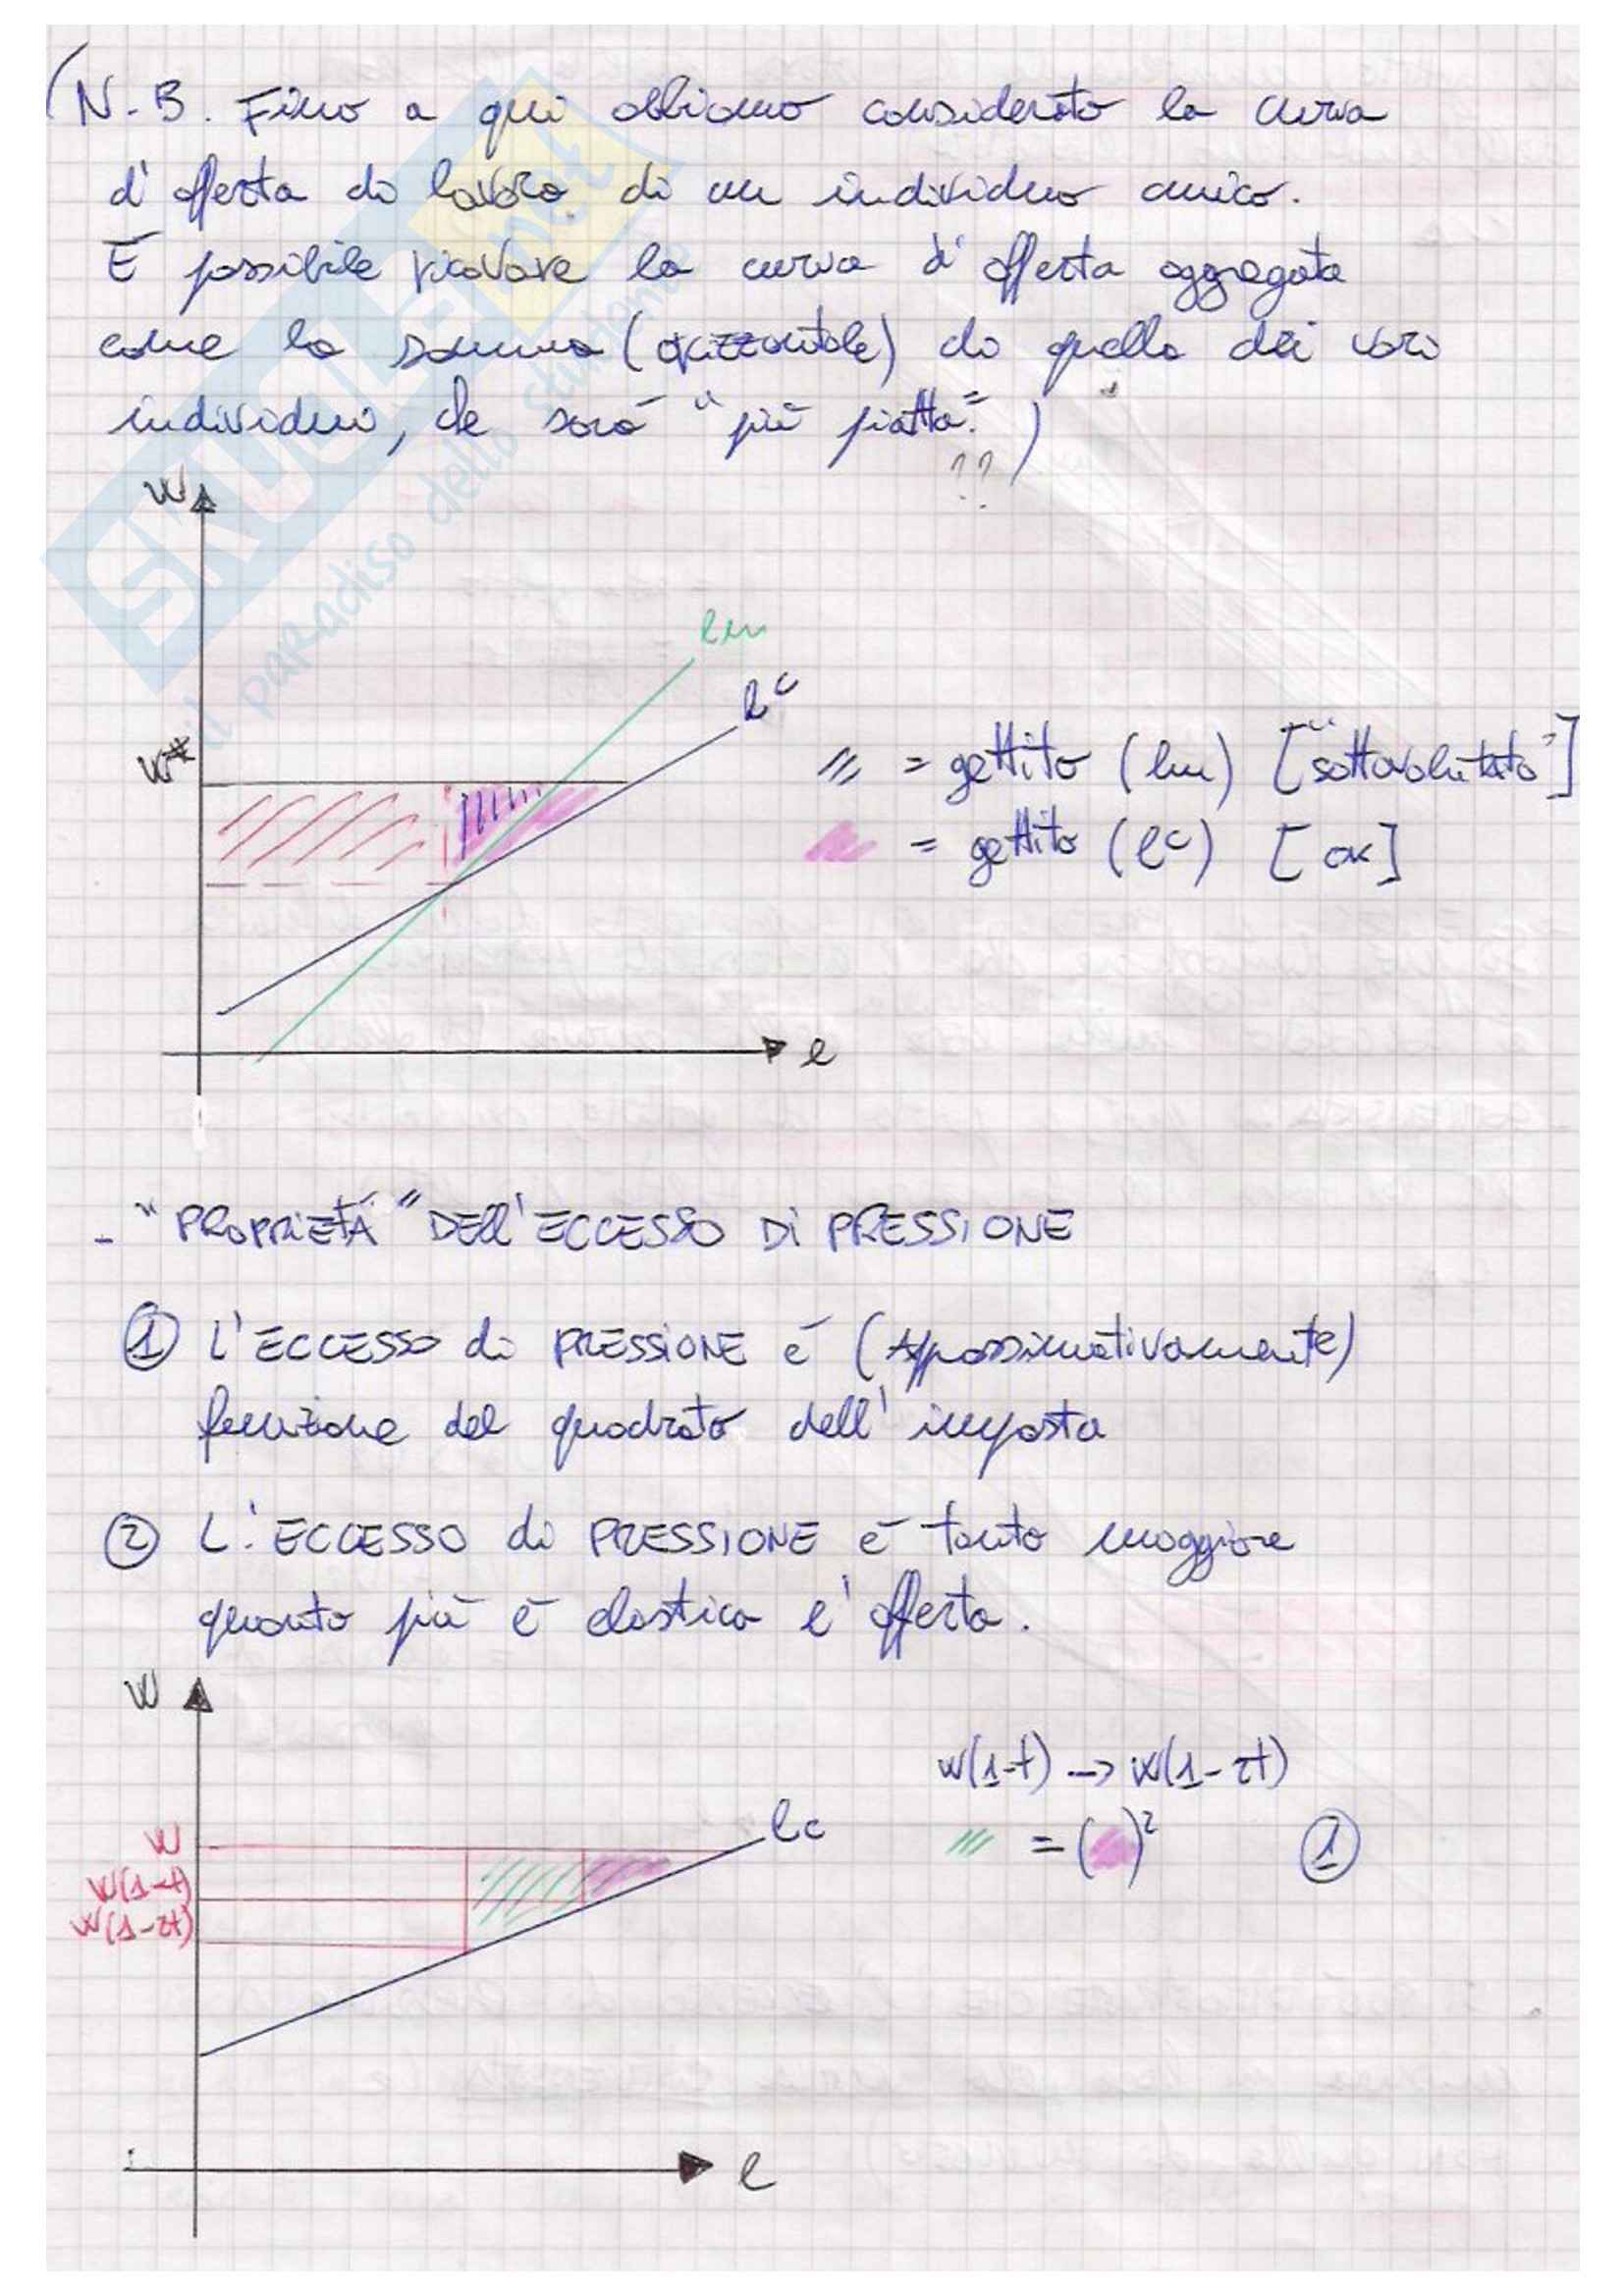 (N.B. Fino a qui abbiamo considerato la curva
d'offerta di lavoro di un individuo unico.
È possibile ricavare la curva d'offerta aggregata
come la somma (orizzontale) di quella dei vari
individui, che sarà "più piatta".)
??
W
lm
lc
W*
/// = gettito (lm) ["sottovalutato"]
= gettito (lc) [ok]
l
- "PROPRIETÀ" DELL'ECCESSO DI PRESSIONE
① L'ECCESSO di PRESSIONE è (Approssimativamente)
funzione del quadrato dell'imposta
② L'ECCESSO di PRESSIONE è tanto maggiore
quanto più è elastica l'offerta.
W
w(1-t) -> w(1-2t)
lc
W
/// = ( )² ①
W(1-t)
W(1-2t)
l
SKUOLA.net
il paradiso dello studente